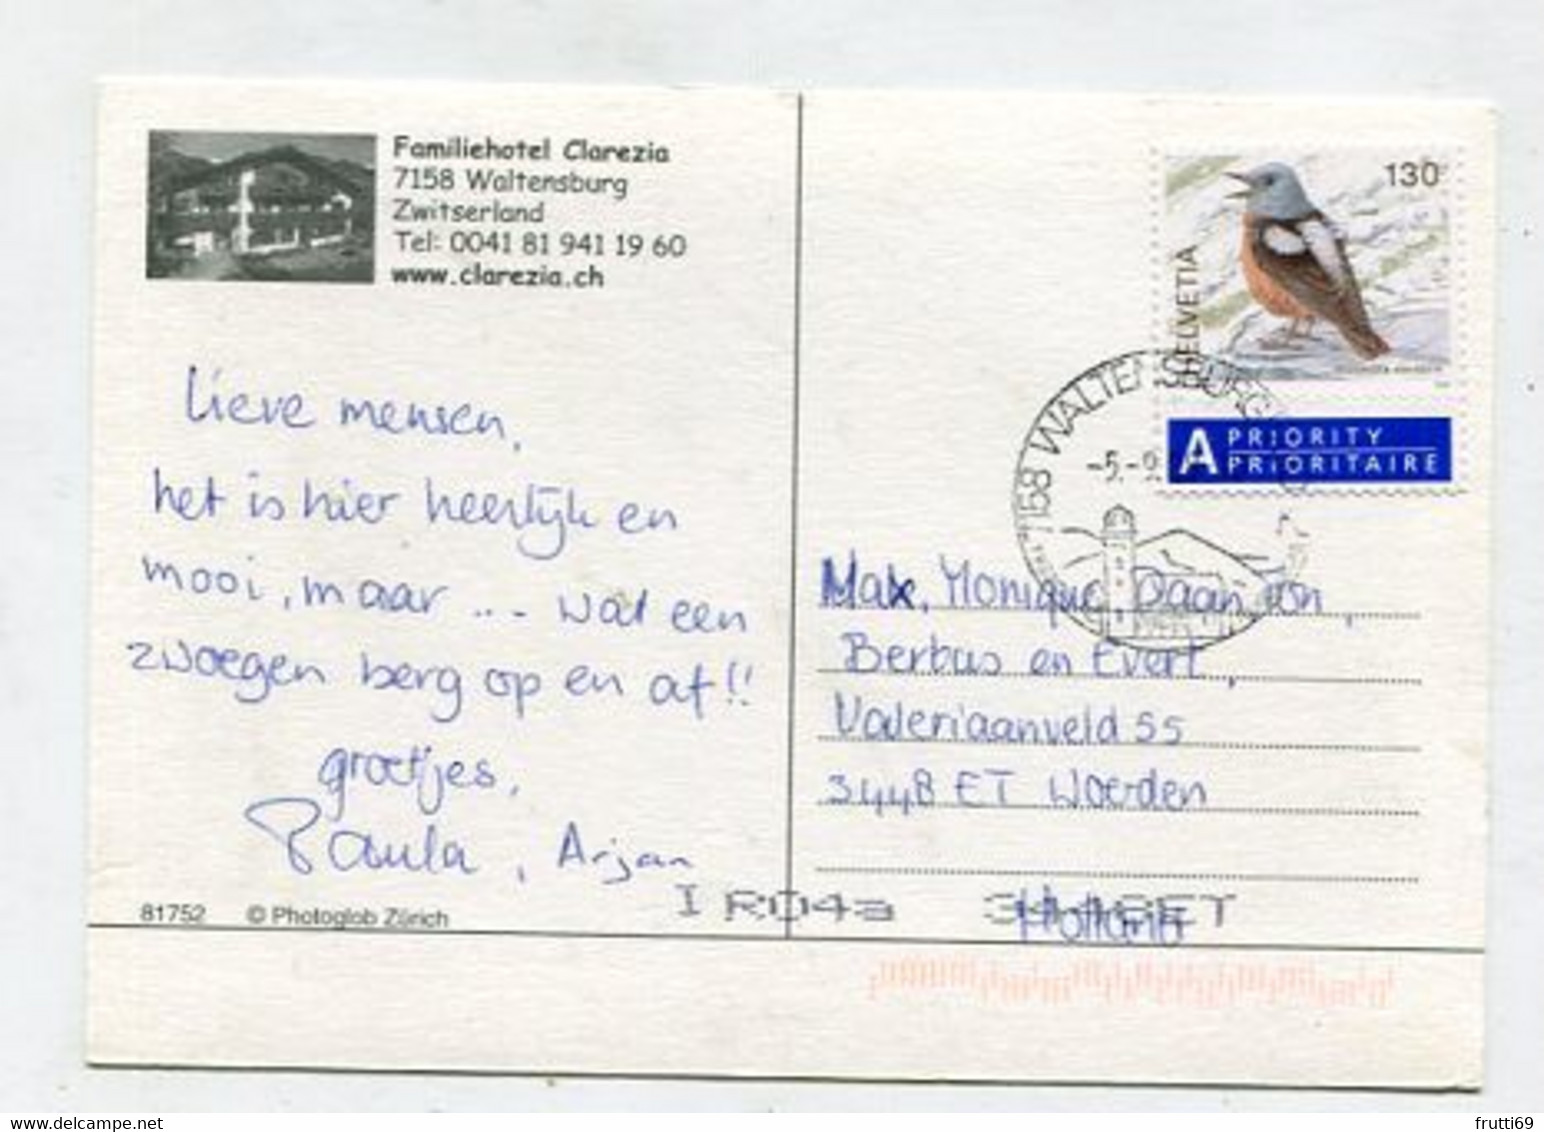 Familiehotel Clarezia
7158 Waltensburg
Zwitserland
Tel: 0041 81 941 19 60
www.clarezia.ch
lieve mensen,
het is hier heerlijk en
mooi, maar ... wat een
zwoegen berg op en af!!
groetjes,
Paula, Arjan
81752 © Photoglob Zürich
130
HELVETIA
A PRIORITY
PRIORITAIRE
7158 WALTENSBURG
-5.-9
Max, Monique, Daan, Ton,
Berbus en Evert,
Valeriaanveld 55
3448 ET Woerden
Holland
I R04a 3448ET
frutti69